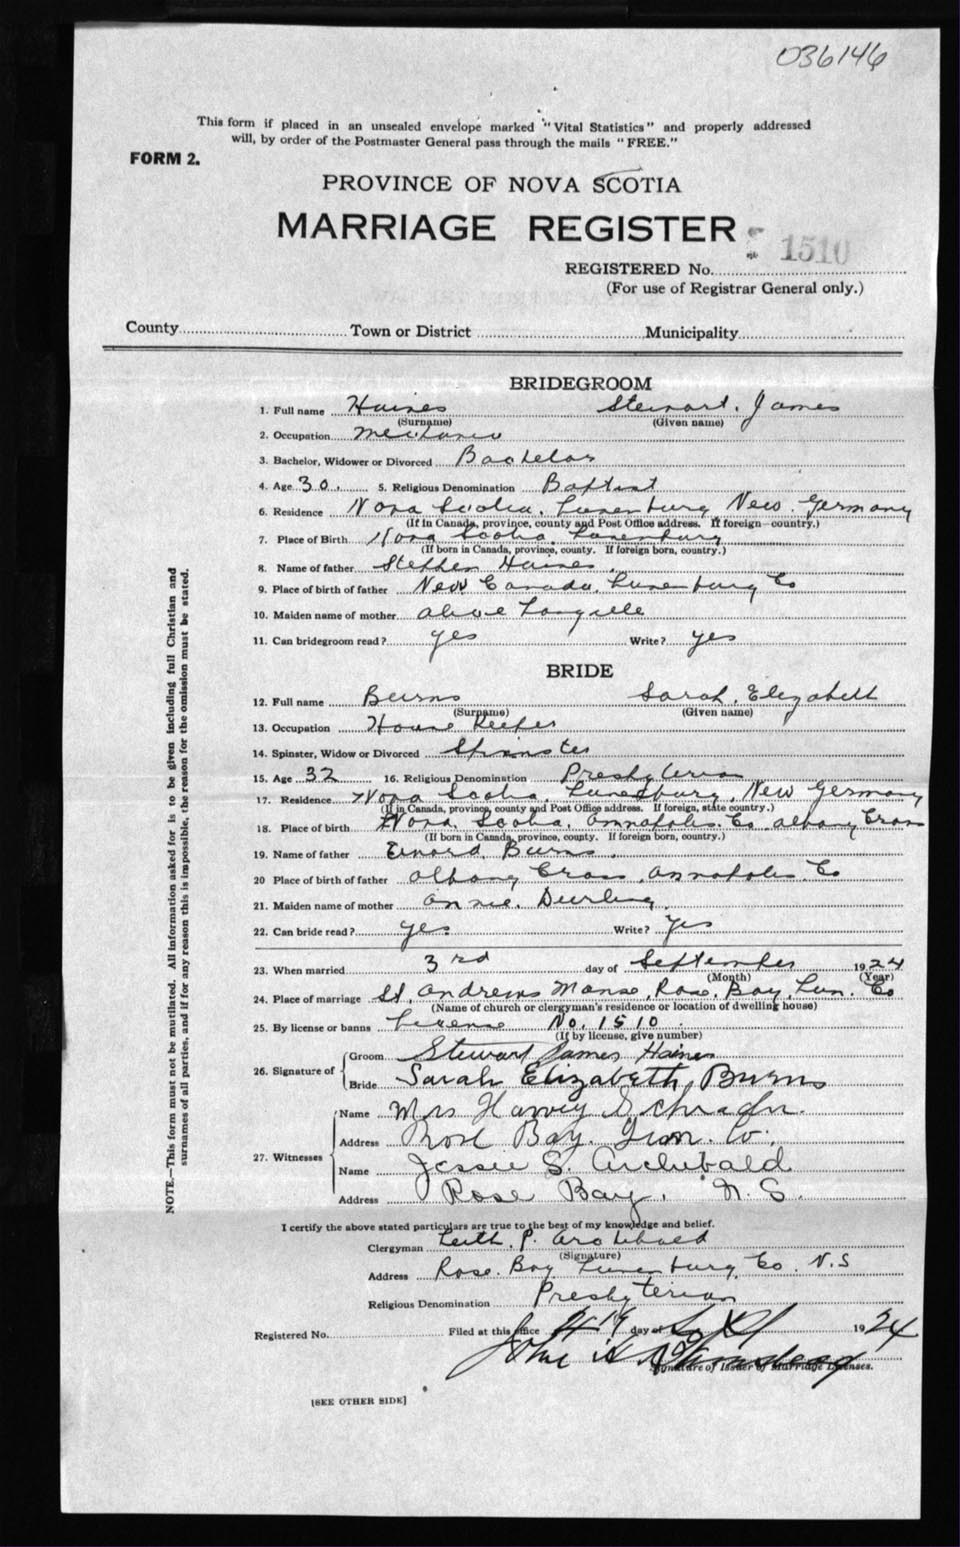 036146
This form if placed in an unsealed envelope marked "Vital Statistics" and properly addressed
will, by order of the Postmaster General pass through the mails "FREE."
FORM 2.
PROVINCE OF NOVA SCOTIA
MARRIAGE REGISTER
1510
REGISTERED No.
(For use of Registrar General only.)
County Town or District Municipality
BRIDEGROOM
1. Full name Haines Stewart, James
(Surname) (Given name)
2. Occupation Mechanic
3. Bachelor, Widower or Divorced Bachelor
4. Age 30. 5. Religious Denomination Baptist
6. Residence Nova Scotia, Lunenburg, New Germany
(If in Canada, province, county and Post Office address. If foreign—country.)
7. Place of Birth Nova Scotia. Lunenburg
(If born in Canada, province, county. If foreign born, country.)
8. Name of father Stephen Haines.
9. Place of birth of father New Canada, Lunenburg Co
10. Maiden name of mother Alice Langille
11. Can bridegroom read? yes Write? yes
BRIDE
12. Full name Burns Sarah, Elizabeth
(Surname) (Given name)
13. Occupation House Keeper
14. Spinster, Widow or Divorced Spinster
15. Age 32 16. Religious Denomination Presbyterian
17. Residence Nova Scotia, Lunenburg, New Germany
(If in Canada, province, county and Post Office address. If foreign, state country.)
18. Place of birth Nova Scotia, Annapolis. Co. Albany Cross
(If born in Canada, province, county. If foreign born, country.)
19. Name of father Burns.
20 Place of birth of father Albany Cross, Annapolis. Co
21. Maiden name of mother Annie. Durling.
22. Can bride read? yes. Write? yes
23. When married 3rd day of September 1924
(Month) (Year)
24. Place of marriage St. Andrews Manse, Rose, Bay, Lun. Co
(Name of church or clergyman's residence or location of dwelling house)
25. By license or banns License No. 1510.
(If by license, give number)
26. Signature of Groom Stewart James Haines
Bride Sarah Elizabeth Burns
27. Witnesses Name Mrs Harvey
Address Rose Bay. Lun. Co.
Name Jessie S. Archibald
Address Rose Bay. N. S.
I certify the above stated particulars are true to the best of my knowledge and belief.
Clergyman Leith. P. Archibald
(Signature)
Address Rose. Bay Lunenburg, Co. N.S
Religious Denomination Presbyterian
Registered No. Filed at this office day of Sept 1924
John H
Signature of Issuer of Marriage Licenses.
[SEE OTHER SIDE]
NOTE.—This form must not be mutilated. All information asked for is to be given including full Christian and
surnames of all parties, and if for any reason this is impossible, the reason for the omission must be stated.